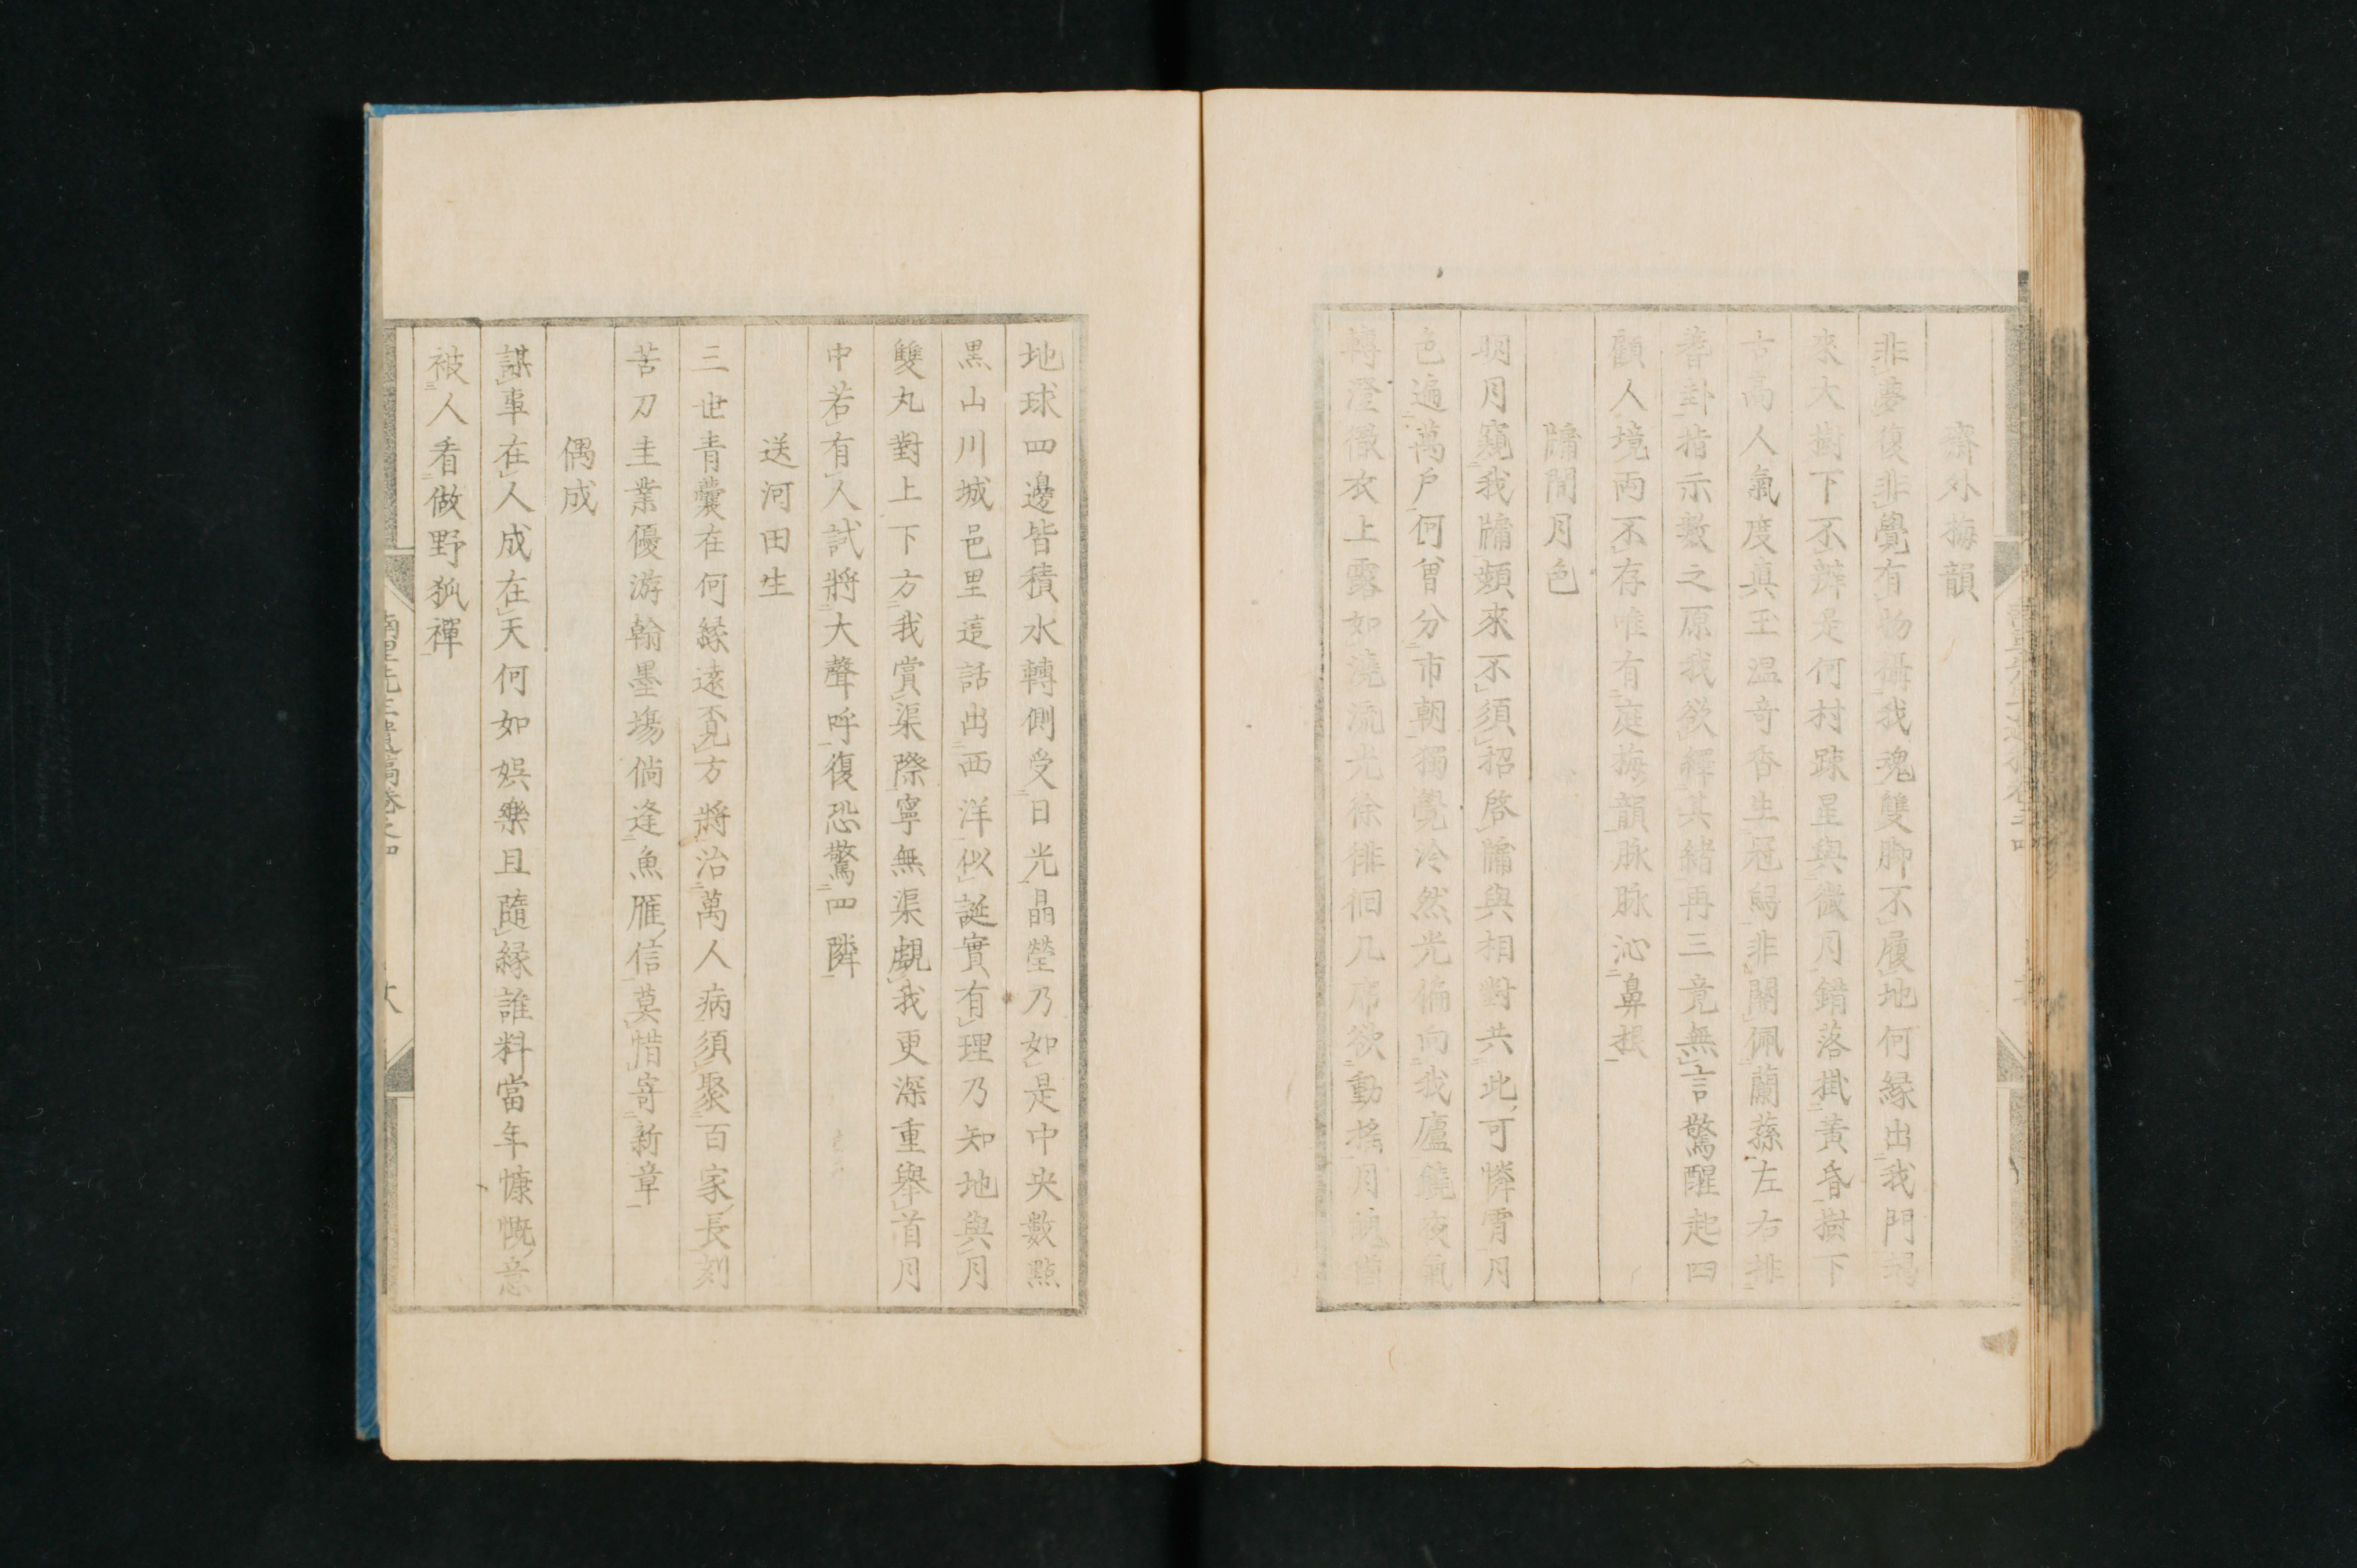 齋外梅韻
非夢復非覺有物攝我魂雙脚不履地何縁出我門歸
來大樹下不辨是何村踈星與微月錯落掛黃昏樹下
古高人氣度真玉温奇香生冠舄非關佩蘭蓀左右排
蓍卦指示數之原我欲繹其緒再三竟無言驚醒起四
顧人境両不存唯有庭梅韻脉脉沁鼻根
牗間月色
明月窺我牗頻來不須招啓牗與相對共此可憐霄月
色遍萬戶何曾分市朝獨覺冷然光偏向我廬饒夜氣
轉澄徹衣上露如澆流光徐徘徊几席欲動搖月
地球四邊皆積水轉側受日光晶瑩乃如是中央數點
黒山川城邑里這話出西洋似誕實有理乃知地與月
雙丸對上下方我賞渠際寧無渠覷我更深重舉首月
中若有人試將大聲呼復恐驚四隣
送河田生
三世青囊在何縁遠覓方將治萬人病須聚百家長刻
苦刀圭業優游翰墨塲倘逢魚雁信莫惜寄新章
偶成
謀事在人成在天何如娯樂且隨縁誰料當年慷慨意
被人看做野狐禪